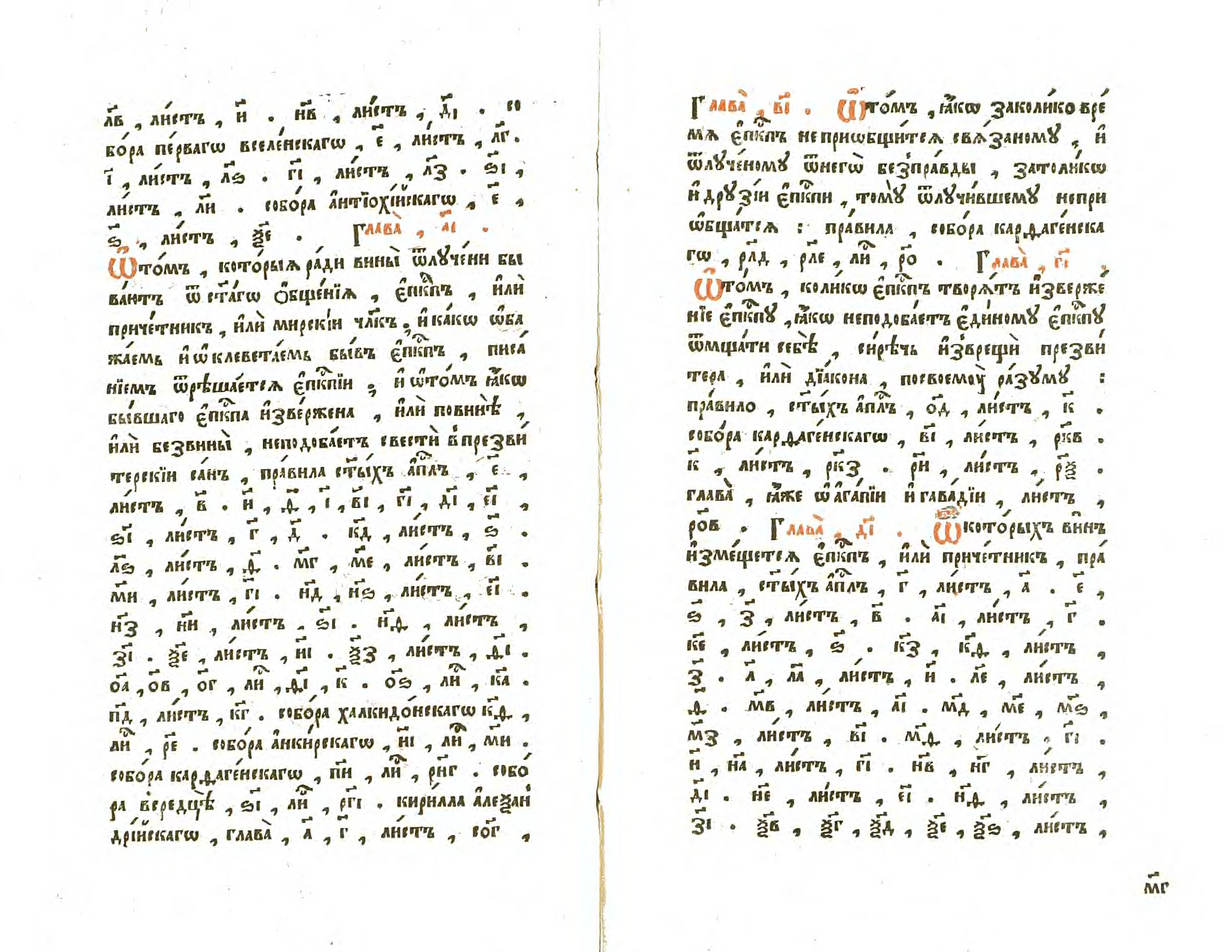 л҃в , ли́стъ , и҃ . н҃в , ли́стъ , д҃і . со
бо́ра пе́рвагѡ вселе́нскагѡ , є҃ , ли́стъ , л҃г .
і҃ , ли́стъ , л҃ѕ . г҃і , ли́стъ , л҃з . ѕ҃і ,
ли́стъ , л҃и . собо́ра а҆нтїѻхі́йскагѡ , є҃ ,
ѕ҃ , ли́стъ , ѯ҃є . Глава̀ , а҃і .
Ѡ҆то́мъ , кото́рыѧ ради вины̀ ѿлуче́ни бы
ва́ютъ ѿ ст҃а́гѡ ѻ҆бще́нїѧ , є҆пкⷭ҇пъ , и҆лѝ
приче́тникъ , и҆лѝ мирскі́и чл҃къ , и҆ ка́кѡ ѡ҆ба
жа́емь и҆ ѡ҆клевета́емь бы́въ є҆пкⷭ҇пъ , писа́
нїемъ ѿрѣша́етсѧ є҆пкⷭ҇пїи , и҆ ѡ҆то́мъ ꙗ҆́кѡ
бы́вшаго є҆пкⷭ҇па и҆зве́ржена , и҆лѝ пови́нѣ ,
и҆лѝ безвины̀ , неподоба́етъ свестѝ впрезви́
терскїи са́нъ , пра́вила ст҃ы́хъ а҆пⷭ҇лъ , є҃ ,
ли́стъ , в҃ . и҃ , ѳ҃ , і҃ , в҃і , г҃і , д҃і , є҃і ,
ѕ҃і , ли́стъ , г҃ , д҃ . к҃д , ли́стъ , ѕ҃ .
л҃ѕ , ли́стъ , ѳ҃ . м҃г , м҃є , ли́стъ , в҃і .
м҃и , ли́стъ , г҃і . н҃д , н҃ѕ , ли́стъ , є҃і .
н҃з , н҃и , ли́стъ . ѕ҃і . н҃ѳ , ли́стъ ,
з҃і . ѯ҃є , ли́стъ , и҃і . ѯ҃з , ли́стъ , ѳ҃і .
о҃а , о҃в , о҃г , лиⷭ҇ , ѳ҃і , к҃ . о҃ѕ , лиⷭ҇ , к҃а .
п҃д , ли́стъ , к҃г . собо́ра халкидо́нскагѡ к҃ѳ ,
лиⷭ҇ , р҃є . собо́ра а҆нки́рскагѡ , и҃і , лиⷭ҇ , м҃и .
собо́ра карѳаге́нскагѡ , п҃и , лиⷭ҇ , рн҃г . собо́
ра вередцѣ , ѕ҃і , лиⷭ҇ , рг҃і . кири́лла а҆леѯа́н
дрі́йскагѡ , глава̀ , а҃ , г҃ , ли́стъ , со҃г ,
Глава̀ , в҃і . Ѡ҆то́мъ , ꙗ҆́кѡ заколи́ко вре́
мѧ є҆пкⷭ҇пъ неприѡбщи́тсѧ свѧ́заному , и҆
ѿлуче́ному ѿнегѡ̀ безпра́вды , затоли́кѡ
и҆ дру́зїи є҆пкⷭ҇пи , тому̀ ѿлучи́вшему непри
ѡбща́тсѧ : пра́вила , собо́ра карѳаге́нска
гѡ , рл҃д , рл҃є , лиⷭ҇ , р҃о . Глава̀ , г҃і .
Ѡ҆то́мъ , коли́кѡ є҆пкⷭ҇пъ творѧ́тъ и҆зверже́
нїе є҆пкⷭ҇пу , ꙗ҆́кѡ неподоба́етъ є҆ди́ному є҆пкⷭ҇пу
ѿмща́ти себѣ̀ , си́рѣчь и҆зврещѝ презви́
тера , и҆лѝ дїа́кона , посвоемоу̀ ра́зуму :
пра́вило , ст҃ы́хъ а҆пⷭ҇лъ , о҃д , ли́стъ , к҃ .
собо́ра карѳаге́нскагѡ , в҃і , ли́стъ , рк҃в .
к҃ , ли́стъ , рк҃з . р҃и , ли́стъ , р҃ѯ .
глава̀ , ꙗ҆́же ѡ҆ а҆га́пїи и҆ гава́дїи , ли́стъ ,
ро҃в . Глава̀ , д҃і . Ѡ҆кото́рыхъ ви́нъ
и҆зме́щетсѧ є҆пкⷭ҇пъ , и҆лѝ приче́тникъ , пра́
вила , ст҃ы́хъ а҆пⷭ҇лъ , г҃ , ли́стъ , а҃ . є҃ ,
ѕ҃ , з҃ , ли́стъ , в҃ . а҃і , ли́стъ , г҃ .
к҃є , ли́стъ , ѕ҃ . к҃з , к҃ѳ , ли́стъ ,
з҃ . л҃ , л҃а , ли́стъ , и҃ . л҃є , ли́стъ ,
ѳ҃ . м҃в , ли́стъ , а҃і . м҃д , м҃є , м҃ѕ ,
м҃з , ли́стъ , в҃і . м҃ѳ , ли́стъ , г҃і .
н҃ , н҃а , ли́стъ , г҃і . н҃в , н҃г , ли́стъ ,
д҃і . н҃є , ли́стъ , є҃і . н҃ѳ , ли́стъ ,
з҃і . ѯ҃в , ѯ҃г , ѯ҃д , ѯ҃є , ѯ҃ѕ , ли́стъ ,
м҃г